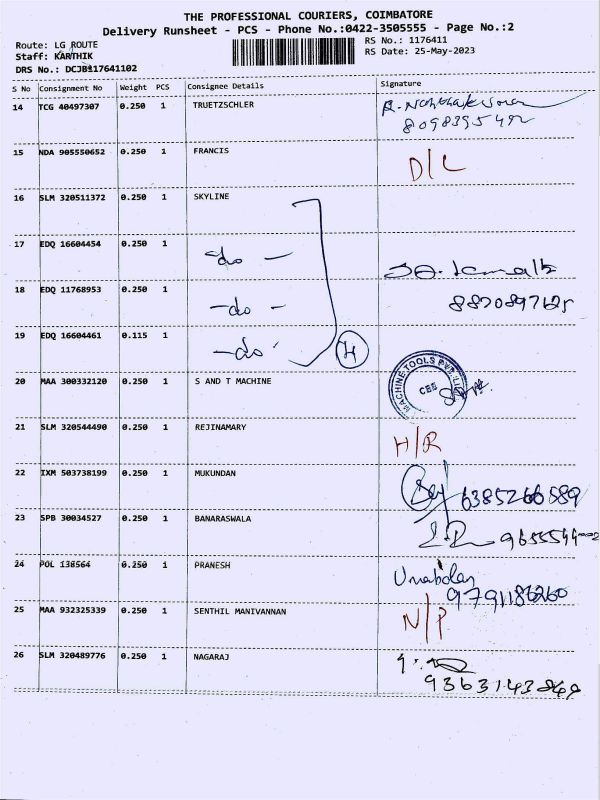 THE PROFESSIONAL COURIERS, COIMBATORE
Delivery Runsheet - PCS - Phone No.:0422-3505555 - Page No.:2
Route: LG ROUTE RS No.: 1176411
Staff: KARTHIK RS Date: 25-May-2023
DRS No.: DCJB117641102
S No Consignment No Weight PCS Consignee Details Signature
14 TCG 40497307 0.250 1 TRUETZSCHLER
8098395492
15 NDA 905550652 0.250 1 FRANCIS D/L
16 SLM 320511372 0.250 1 SKYLINE
17 EDQ 16604454 0.250 1 -do-
18 EDQ 11768953 0.250 1 -do- 8870897625
19 EDQ 16604461 0.115 1 -do- 4
20 MAA 300332120 0.250 1 S AND T MACHINE MACHINE TOOLS PVT. LTD CBE
21 SLM 320544490 0.250 1 REJINAMARY H/R
22 IXM 503738199 0.250 1 MUKUNDAN 6385266589
23 SPB 30034527 0.250 1 BANARASWALA
24 POL 138564 0.250 1 PRANESH
9791186260
25 MAA 932325339 0.250 1 SENTHIL MANIVANNAN N/P
26 SLM 320489776 0.250 1 NAGARAJ
9363143848